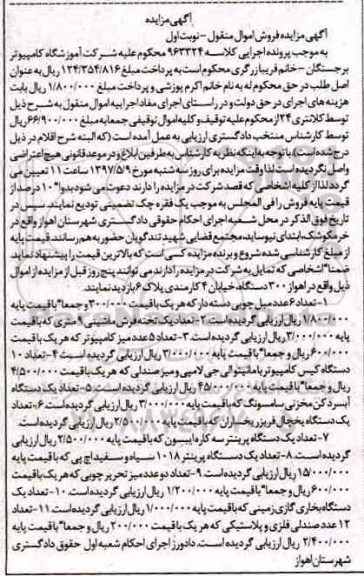 آگهی مزایده
آگهی مزایده فروش اموال منقول - نوبت اول
به موجب پرونده اجرایی کلاسه ۹۶۳۳۲۴ محکوم علیه شرکت آموزشگاه کامپیوتر
برجستگان - خانم فریبا زرگری محکوم است به پرداخت مبلغ ۱۲۴/۳۵۴/۸۱۶ ریال به عنوان
اصل طلب در حق محکوم له به نام خانم اکرم پوزشی و پرداخت مبلغ ۱/۸۰۰/۰۰۰ ریال بابت
هزینه های اجرای در حق دولت و در راستای اجرای مفاد اجراییه اموال منقول به شرح ذیل
توسط کلانتری ۲۴ از محکوم علیه توقیف و کلیه اموال توقیفی جمعا به مبلغ ۶۶/۹۰۰/۰۰۰ ریال
توسط کارشناس منتخب دادگستری ارزیابی به عمل آمده است (که البته شرح اقلام در ذیل
درج شده است). با توجه به اینکه نظریه کارشناس به طرفین ابلاغ و در موعد قانونی هیچ اعتراضی
واصل نگردیده است لذا وقت مزایده برای روز سه شنبه مورخ ۱۳۹۷/۵/۹ ساعت ۱۱ تعیین می
گردد لذا از کلیه اشخاصی که قصد شرکت در مزایده را دارند دعوت می شود بدوا" ۱۰ درصد از
قیمت پایه فروش را فی المجلس به موجب یک فقره چک تضمینی تودیع نمایند. سپس در
تاریخ فوق الذکر در محل شعبه اجرای احکام حقوقی دادگستری شهرستان اهواز واقع در
خرمکوشک، ابتدای نیوساید، مجتمع قضایی شهید تندگویان حضور به هم رسانند، قیمت پایه
از مبلغ کارشناسی شده شروع و برنده مزایده کسی است که بالاترین قیمت را پیشنهاد نماید.
ضمنا" اشخاصی که تمایل به شرکت در مزایده را دارند می توانند پنج روز قبل از مزایده از اموال
ذیل واقع در اهواز ۳۰۰ دستگاه، خیابان ۴ کارمندی پلاک ۶ بازدید نمایند.
۱- تعداد ۶ عدد مبل چوبی دسته دار که هر یک با قیمت ۳۰۰/۰۰۰ و جمعا" با قیمت پایه
۱/۸۰۰/۰۰۰ ریال ارزیابی گردیده است. ۲- تعداد یک تخته فرش ماشینی متری که با قیمت
پایه ۳/۰۰۰/۰۰۰ ریال ارزیابی گردیده است. ۳- تعداد ۵ عدد میز کامپیوتر که هر یک با قیمت
۶۰۰/۰۰۰ ریال و جمعا" با قیمت پایه ۳/۰۰۰/۰۰۰ ریال ارزیابی گردیده است ۴- تعداد ۱۰
دستگاه کیس کامپیوتر با مانیتور ال جی لامپی و میز صندلی که هر یک با قیمت ۴/۵۰۰/۰۰۰
ریال و جمعا" با قیمت پایه ۴۵/۰۰۰/۰۰۰ ریال ارزیابی گردیده است. ۵- تعداد یک دستگاه
آبسرد کن مخزنی سامسونگ که با قیمت پایه ۳/۰۰۰/۰۰۰ ریال ارزیابی گردیده است. ۶- تعداد
یک دستگاه یخچال فریزر بخاران که با قیمت پایه ۲/۵۰۰/۰۰۰ ریال ارزیابی گردیده است.
۷- تعداد یک دستگاه پرینتر سه کاره اپسون که با قیمت پایه ۲/۵۰۰/۰۰۰ ریال ارزیابی
گردیده است. ۸- تعداد یک دستگاه پرینتر ۱۰۱۸ سیاه و سفید اچ پی که با قیمت پایه
۱۵/۰۰۰/۰۰۰ ریال ارزیابی گردیده است. ۹- تعداد دو عدد میز تحریر چوبی که هر یک با قیمت
۶۰۰/۰۰۰ ریال و جمعا" با قیمت پایه ۱/۲۰۰/۰۰۰ ریال ارزیابی گردیده است. ۱۰- تعداد یک
دستگاه بخاری گازی زمینی که با قیمت پایه ۱/۰۰۰/۰۰۰ ریال ارزیابی گردیده است. ۱۱- تعداد
۱۲ عدد صندلی فلزی و پلاستیکی که هر یک با قیمت ۲۰۰/۰۰۰ ریال و جمعا" با قیمت پایه
۲/۴۰۰/۰۰۰ ریال ارزیابی گردیده است. دادورز اجرای احکام شعبه اول حقوق دادگستری
شهرستان اهواز